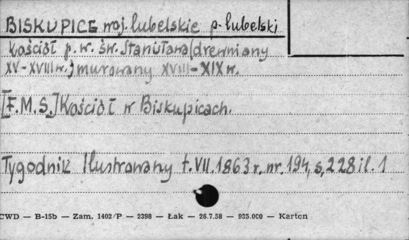 BISKUPICE woj. lubelskie p. lubelski
Kościół p.w. św. Stanisława (drewniany
XV-XVIII w.) murowany XVIII-XIX w.
[F.M.S.] Kościół w Biskupicach.
Tygodnik Ilustrowany t.VII.1863 r. nr. 194, s, 228 il. 1
CWD — B-15b — Zam. 1402/P — 2398 — Łak — 26.7.58 — 935.000 — Karton